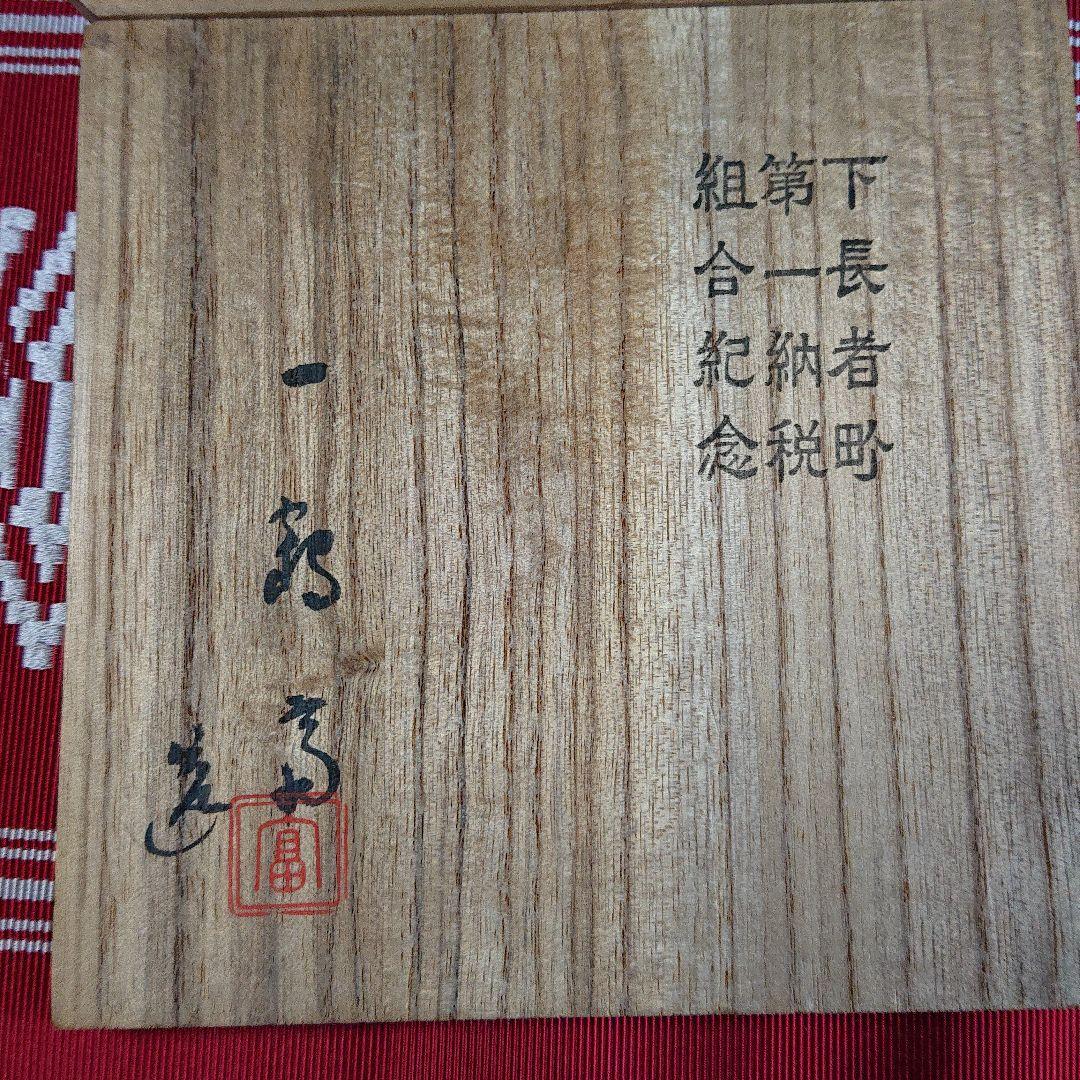 下長者町
第一納税
組合紀念
一
造
富